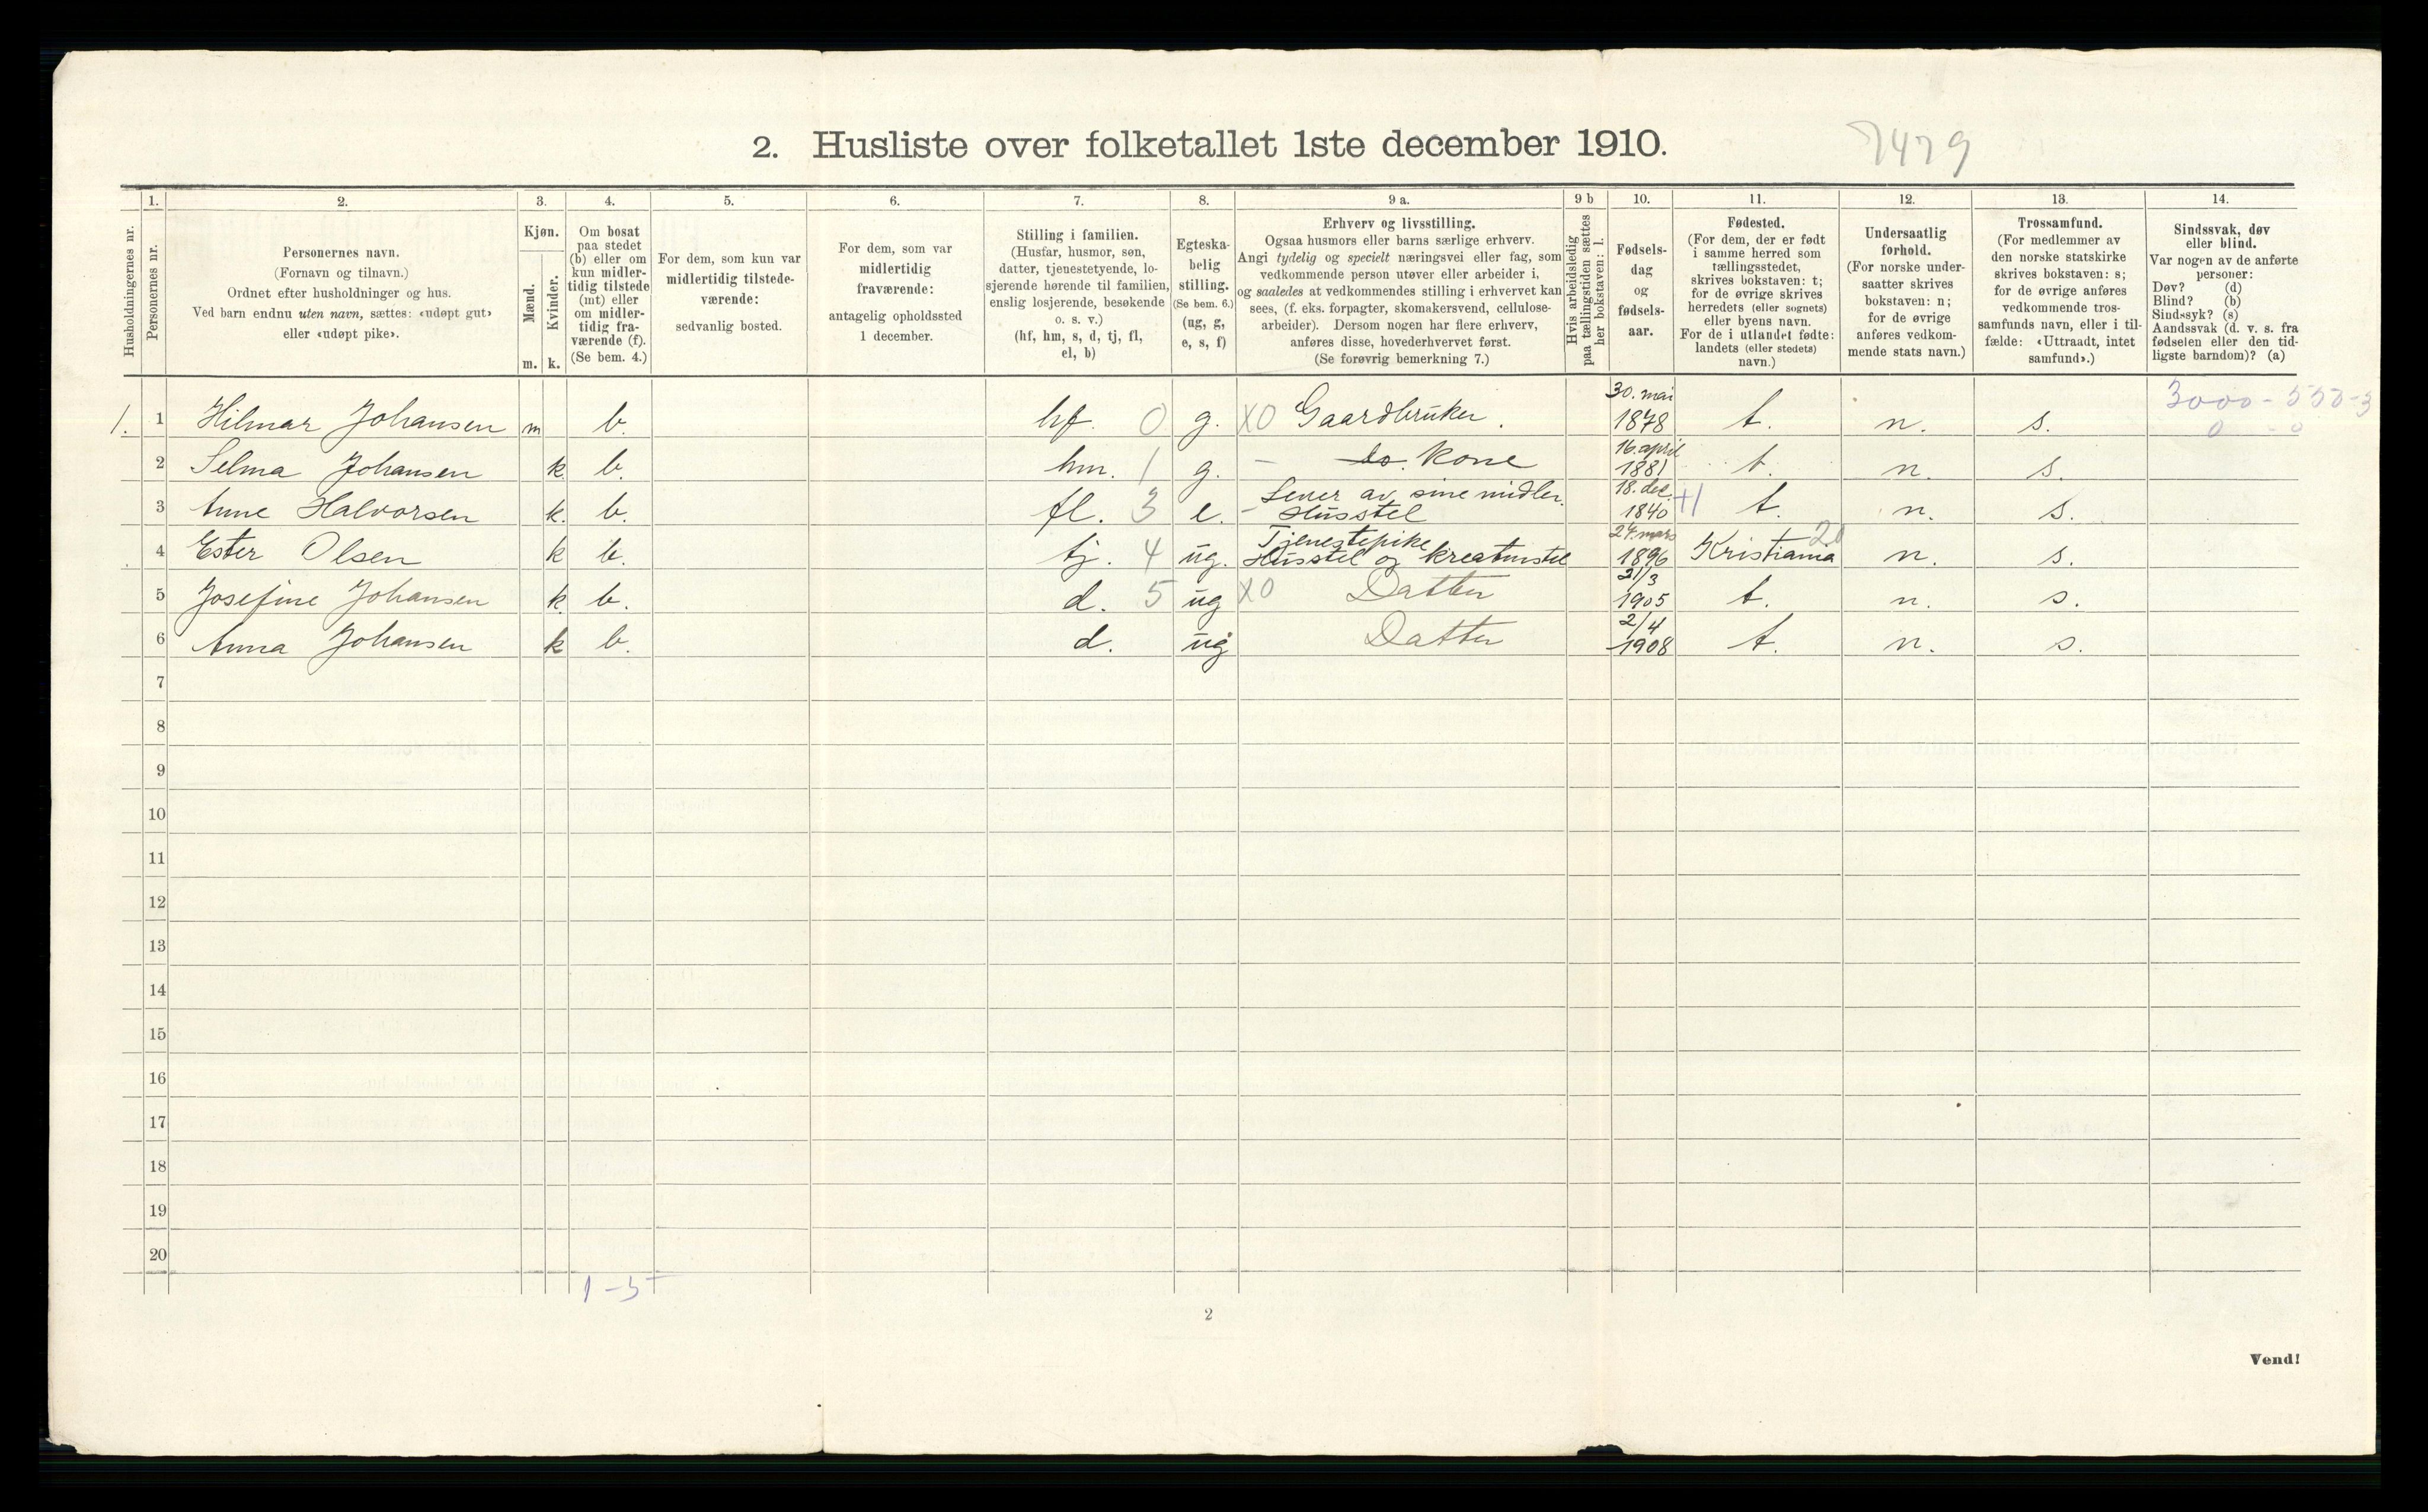 2. Husliste over folketallet 1ste december 1910.
7479
Husholdningernes nr.
1.
Personernes nr.
2.
Personernes navn.
(Fornavn og tilnavn.)
Ordnet efter husholdninger og hus.
Ved barn endnu uten navn, sættes: «udøpt gut»
eller «udøpt pike».
3.
Kjøn.
Mænd.
Kvinder.
m. k.
4.
Om bosat
paa stedet
(b) eller om
kun midler-
tidig tilstede
(mt) eller
om midler-
tidig fra-
værende (f).
(Se bem. 4.)
5.
For dem, som kun var
midlertidig tilstede-
værende:
sedvanlig bosted.
6.
For dem, som var
midlertidig
fraværende:
antagelig opholdssted
1 december.
7.
Stilling i familien.
(Husfar, husmor, søn,
datter, tjenestetyende, lo-
sjerende hørende til familien,
enslig losjerende, besøkende
o. s. v.)
(hf, hm, s, d, tj, fl,
el, b)
8.
Egteska-
belig
stilling.
(Se bem. 6.)
(ug, g,
e, s, f)
9 a.
Erhverv og livsstilling.
Ogsaa husmors eller barns særlige erhverv.
Angi tydelig og specielt næringsvei eller fag, som
vedkommende person utøver eller arbeider i,
og saaledes at vedkommendes stilling i erhvervet kan
sees, (f. eks. forpagter, skomakersvend, cellulose-
arbeider). Dersom nogen har flere erhverv,
anføres disse, hovederhvervet først.
(Se forøvrig bemerkning 7.)
9 b
Hvis arbeidsledig
paa tællingstiden sættes
her bokstaven: l.
10.
Fødsels-
dag
og
fødsels-
aar.
11.
Fødested.
(For dem, der er født
i samme herred som
tællingsstedet,
skrives bokstaven: t;
for de øvrige skrives
herredets (eller sognets)
eller byens navn.
For de i utlandet fødte:
landets (eller stedets)
navn.)
12.
Undersaatlig
forhold.
(For norske under-
saatter skrives
bokstaven: n;
for de øvrige
anføres vedkom-
mende stats navn.)
13.
Trossamfund.
(For medlemmer av
den norske statskirke
skrives bokstaven: s;
for de øvrige anføres
vedkommende tros-
samfunds navn, eller i til-
fælde: «Uttraadt, intet
samfund».)
14.
Sindssvak, døv
eller blind.
Var nogen av de anførte
personer:
Døv? (d)
Blind? (b)
Sindssyk? (s)
Aandssvak (d. v. s. fra
fødselen eller den tid-
ligste barndom)? (a)
3000 - 550-3
0 - 0
1. 1 Hilmar Johansen m b. hf. 0 g. X0 Gaardbruker. 30. mai 1878 t. n. s.
2 Selma Johansen k b. hm. 1 g. - do. Kone 16. april 1881 t. n. s.
3 Anne Halvorsen k. b. fl. 3 e. - Lever av sine midler. Husstel 18. dec. 1840 +1 t. n. s.
4 Ester Olsen k b. tj. 4 ug. Tjenestepike Husstel og kreaturstel 24. mars 1896 Kristiania 20 n. s.
5 Josefine Johansen k. b. d. 5 ug X0 Datter 21/3 1905 t. n. s.
6 Anna Johansen k b. d. ug Datter 2/4 1908 t. n. s.
7
8
9
10
11
12
13
14
15
16
17
18
19
20
1 - 5
2
Vend!